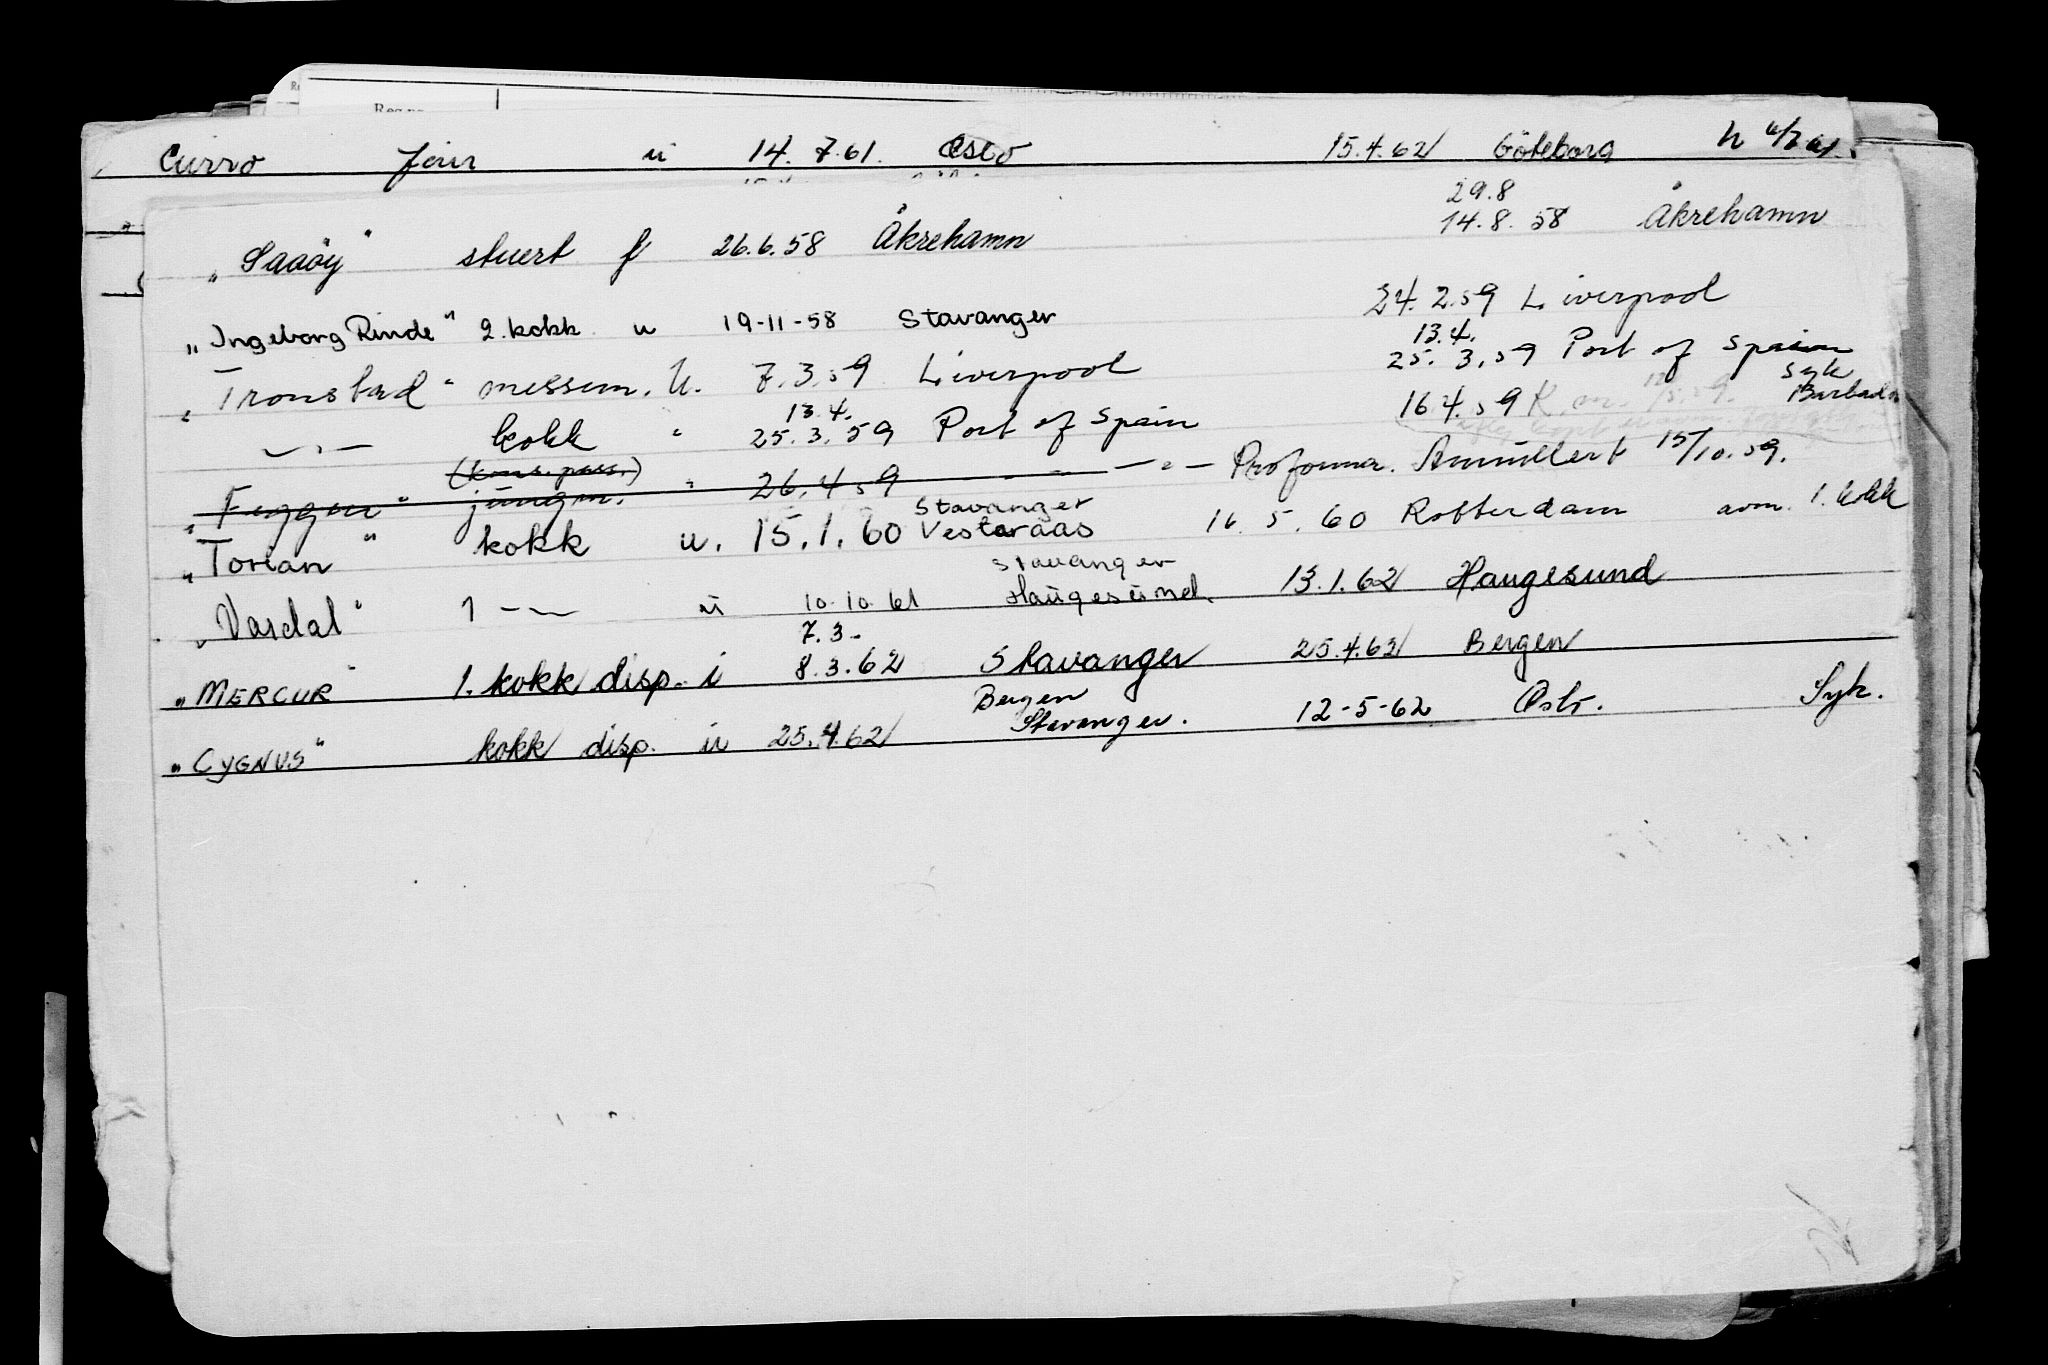 Curro Jour u 14.7.61. Oslo 15.4.62 Göteborg
29.8
„Saaöy" stuert f 26.6.58 Åkrehamn 14.8.58 Åkrehamn
„Ingeborg Rinde" 2.kokk u 19-11-58 Stavanger 24.2.59 Liverpool
13.4.
„Tronstad" messem. U. 7.3.59 Liverpool 25.3.59 Port of Spain
13.4. syk
—"— kokk " 25.3.59 Port of Spain 16.4.59 Barbados
(kons. pass.)
„Feggen" jungm. " 26.4.59 —"— Proforma. Annullert 15/10.59.
Stavanger
„Torian" kokk u. 15.1.60 Vesteraas 16.5.60 Rotterdam avm. 1. kokk
Stavanger
„Vardal" 1 —"— u 10.10.61 Haugesund. 13.1.62 Haugesund
7.3-
„MERCUR" 1. kokk disp. i 8.3.62 Stavanger 25.4.62 Bergen
Bergen
„CYGNUS" kokk disp. u 25.4.62 Stavanger. 12-5-62 Oslo. Syk.